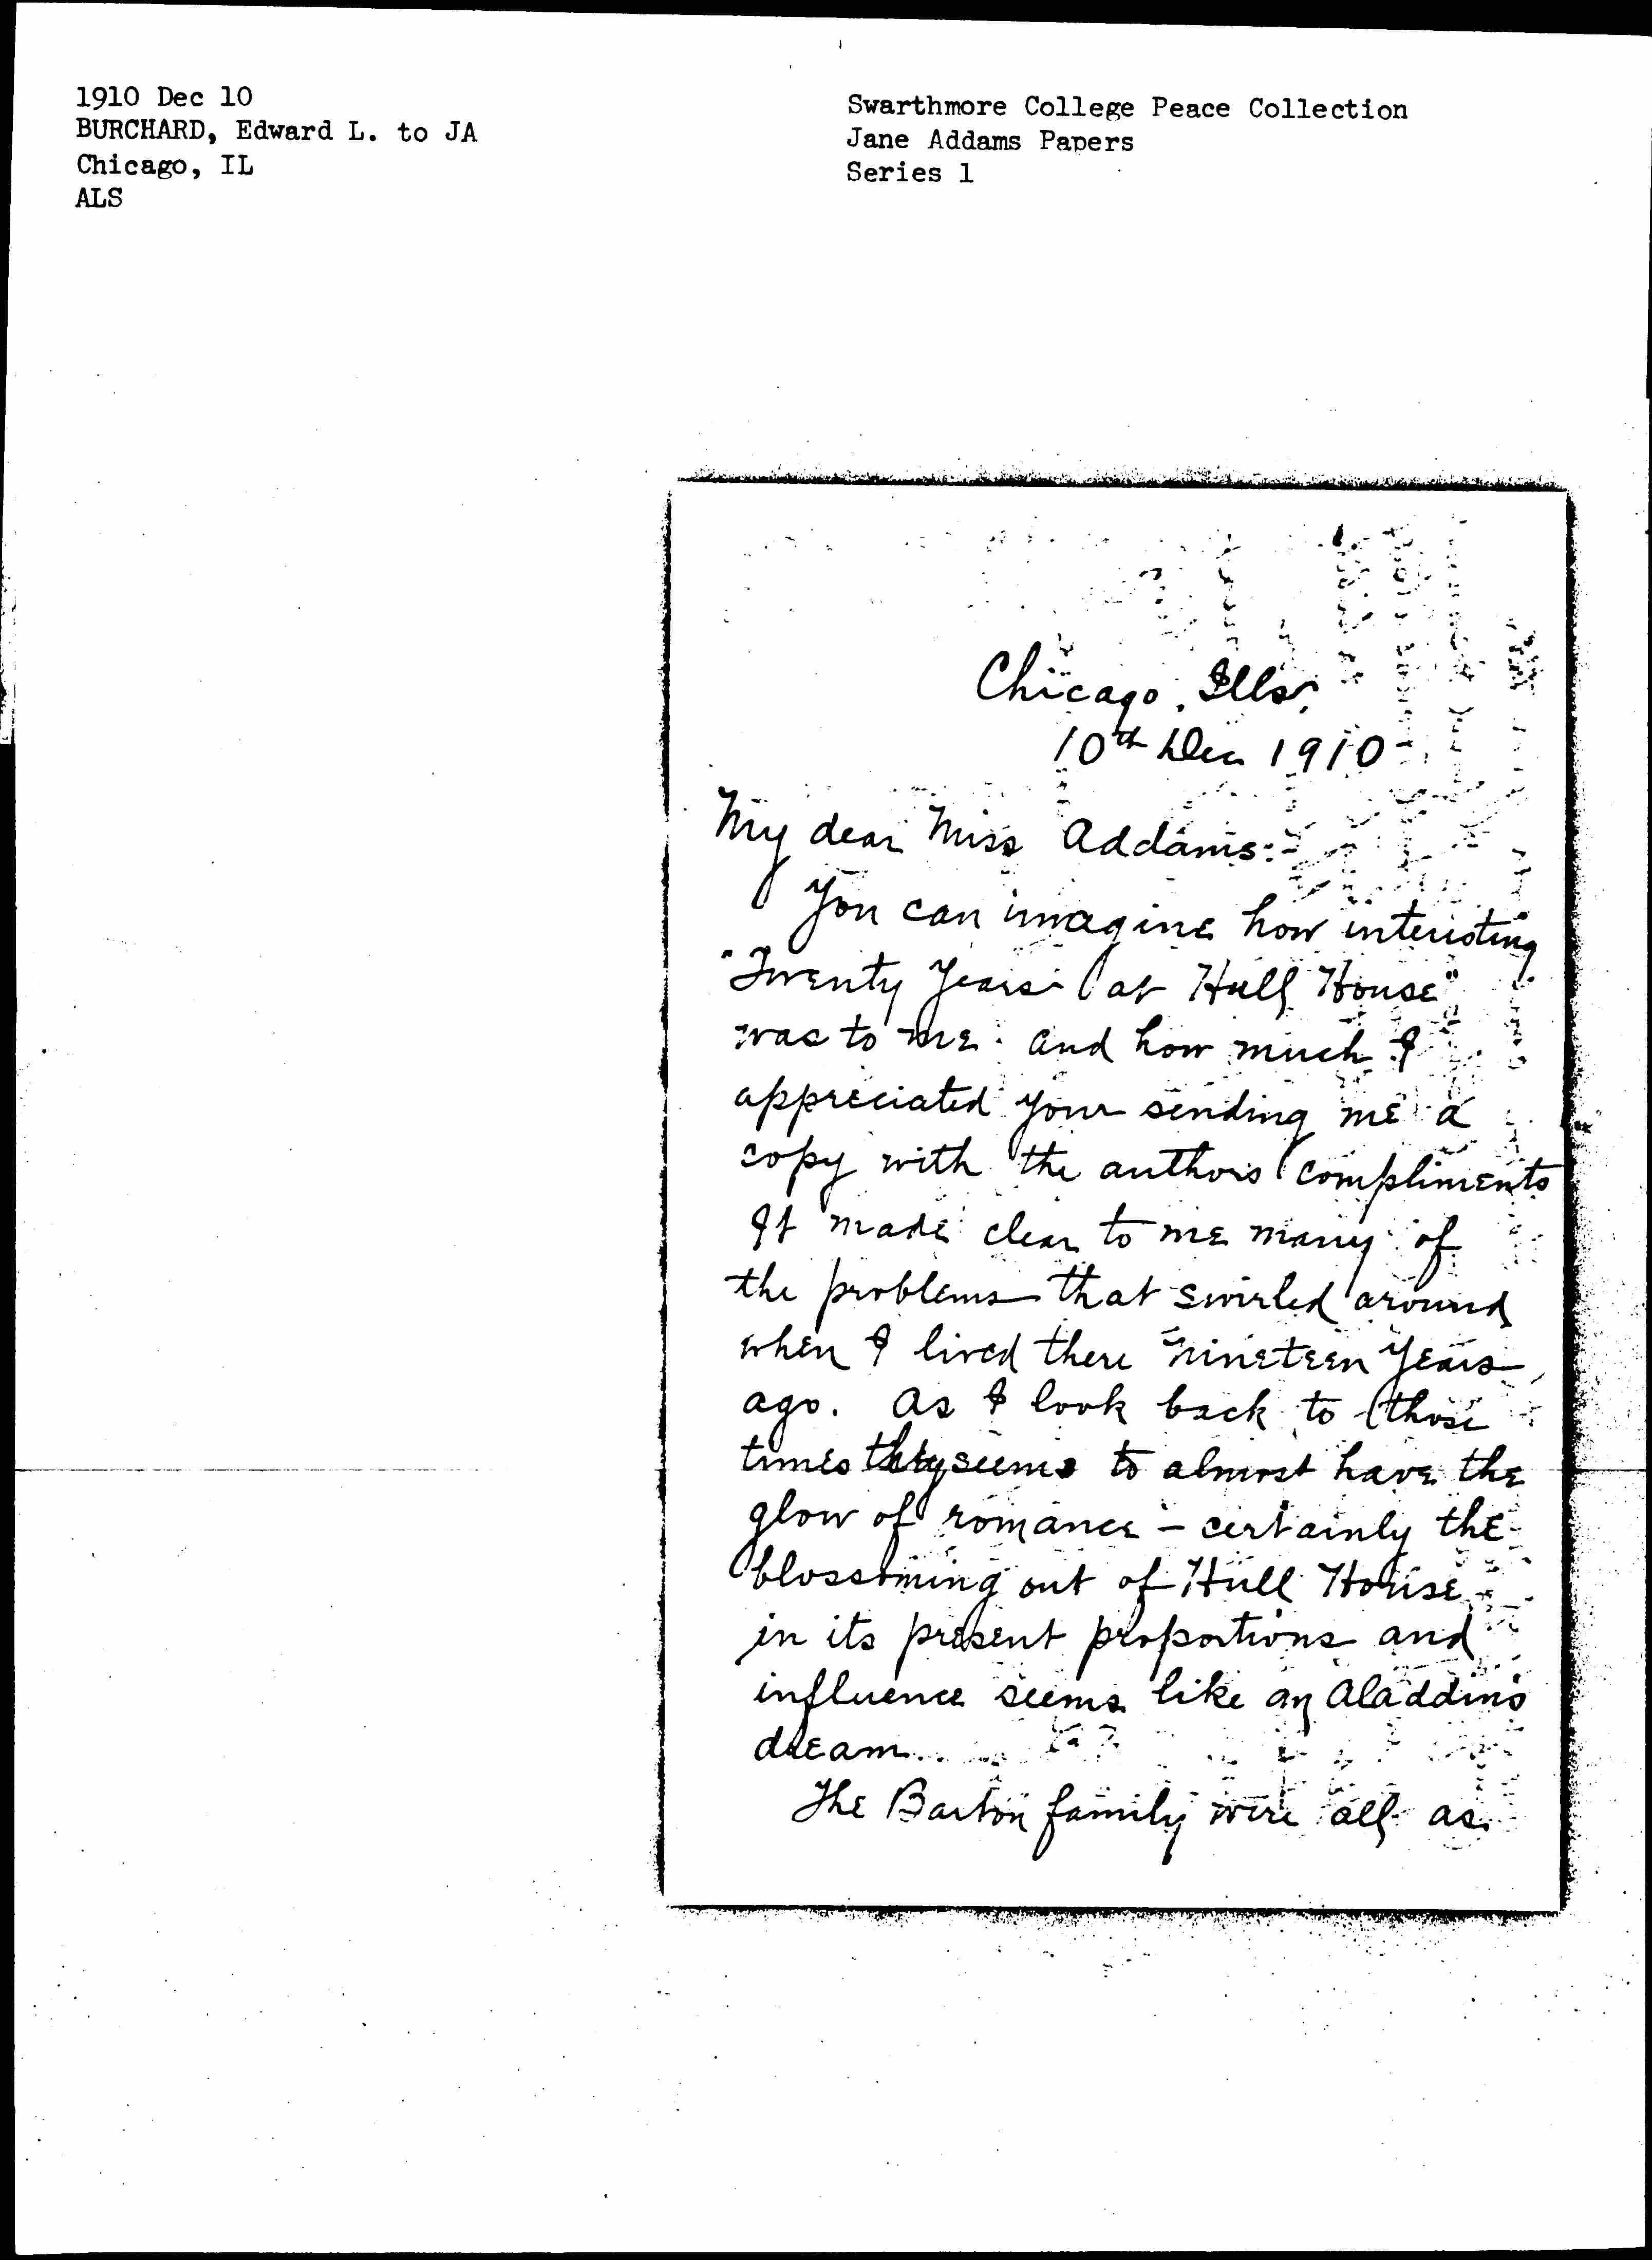 1910 Dec 10
BURCHARD, Edward L. to JA
Chicago, IL
ALS
Swarthmore College Peace Collection
Jane Addams Papers
Series 1
Chicago, Ills,
10th Dec 1910
My dear Miss Addams:-
You can imagine how interesting
"Twenty Years at Hull House"
was to me and how much I
appreciated your sending me a
copy with the authors compliments
It made clear to me many of
the problems that swirled around
when I lived there nineteen years
ago. As I look back to those
times they seems to almost have the
glow of romance - certainly the
blossoming out of Hull House
in its present proportions and
influence seems like an Aladdins
dream.
The Barton family were all as